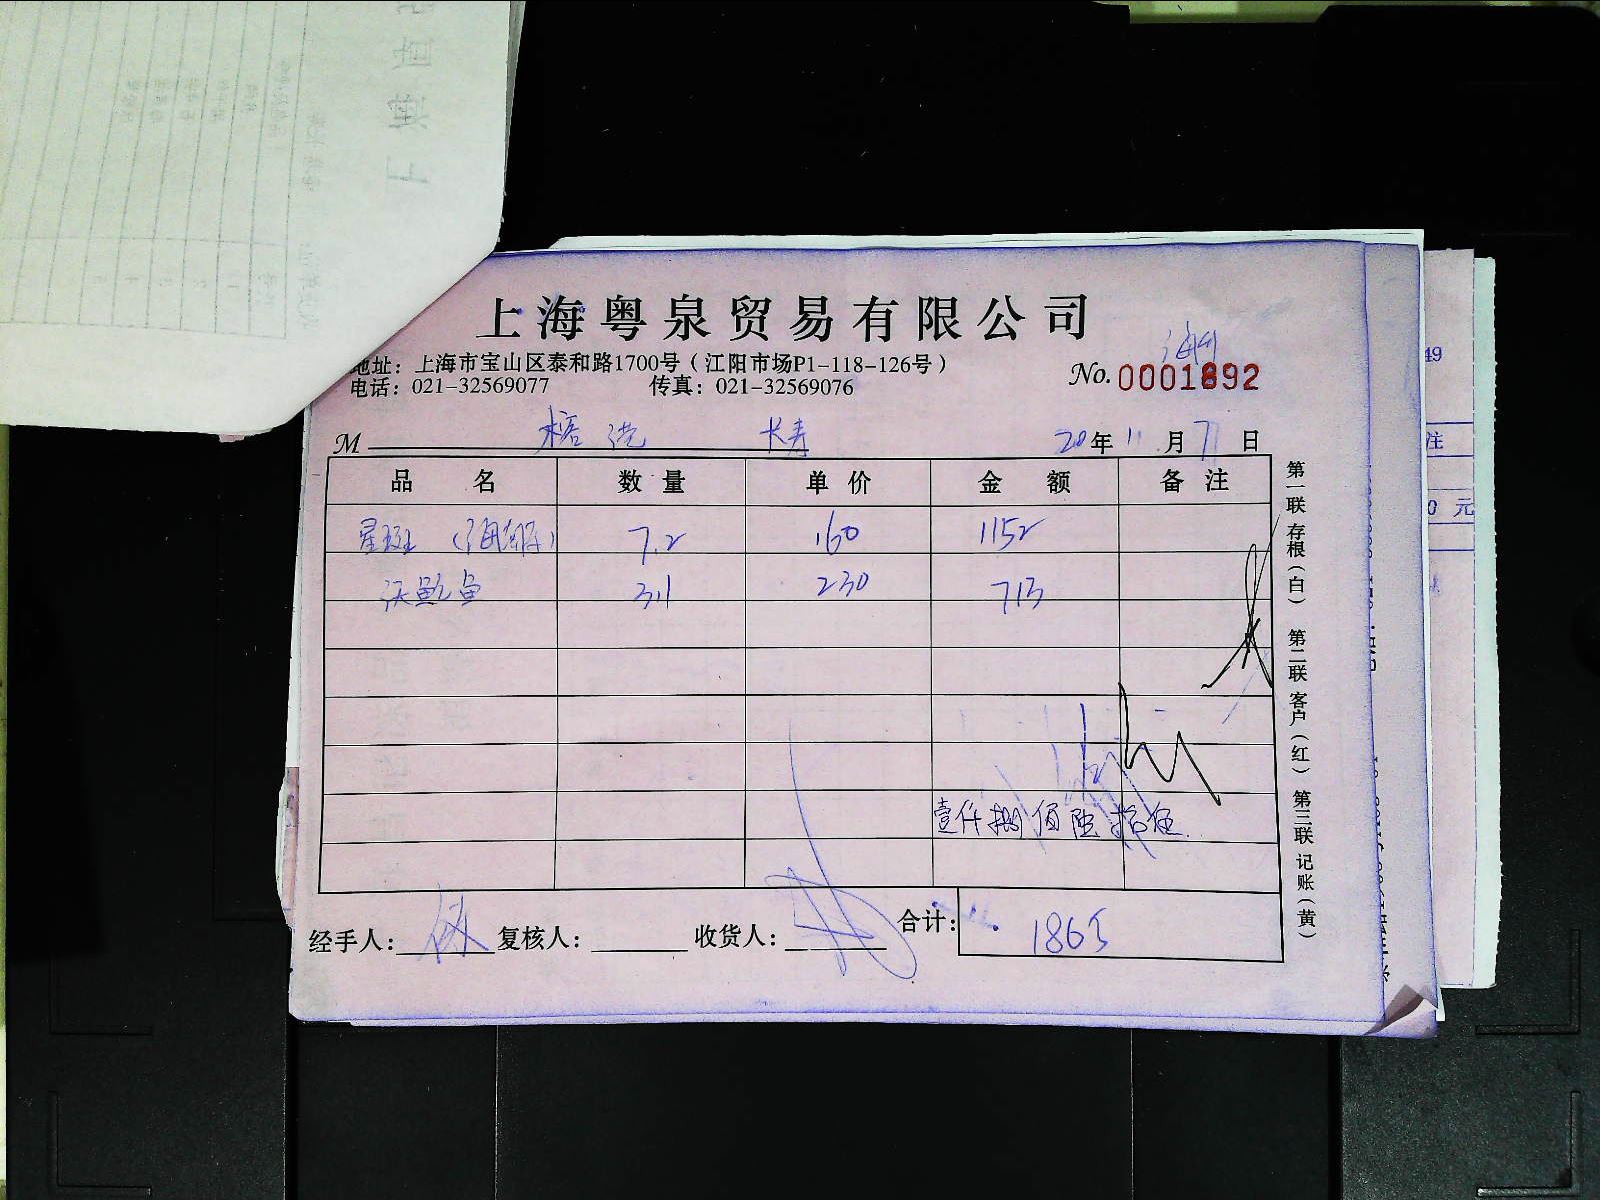 上海粤泉贸易有限公司
地址：上海市宝山区泰和路1700号（江阳市场P1-118-126号）
电话：021-32569077 传真：021-32569076
No. 0001892
M 长寿 20年 11月 日
品名 数量 单价 金额 备注
星斑 7.2 160 1152
鱼 3.1 230 713
壹仟捌佰陆拾伍
经手人： 复核人： 收货人： 合计： 1865
第一联 存根（白） 第二联 客户（红） 第三联 记账（黄）
49
注
0 元